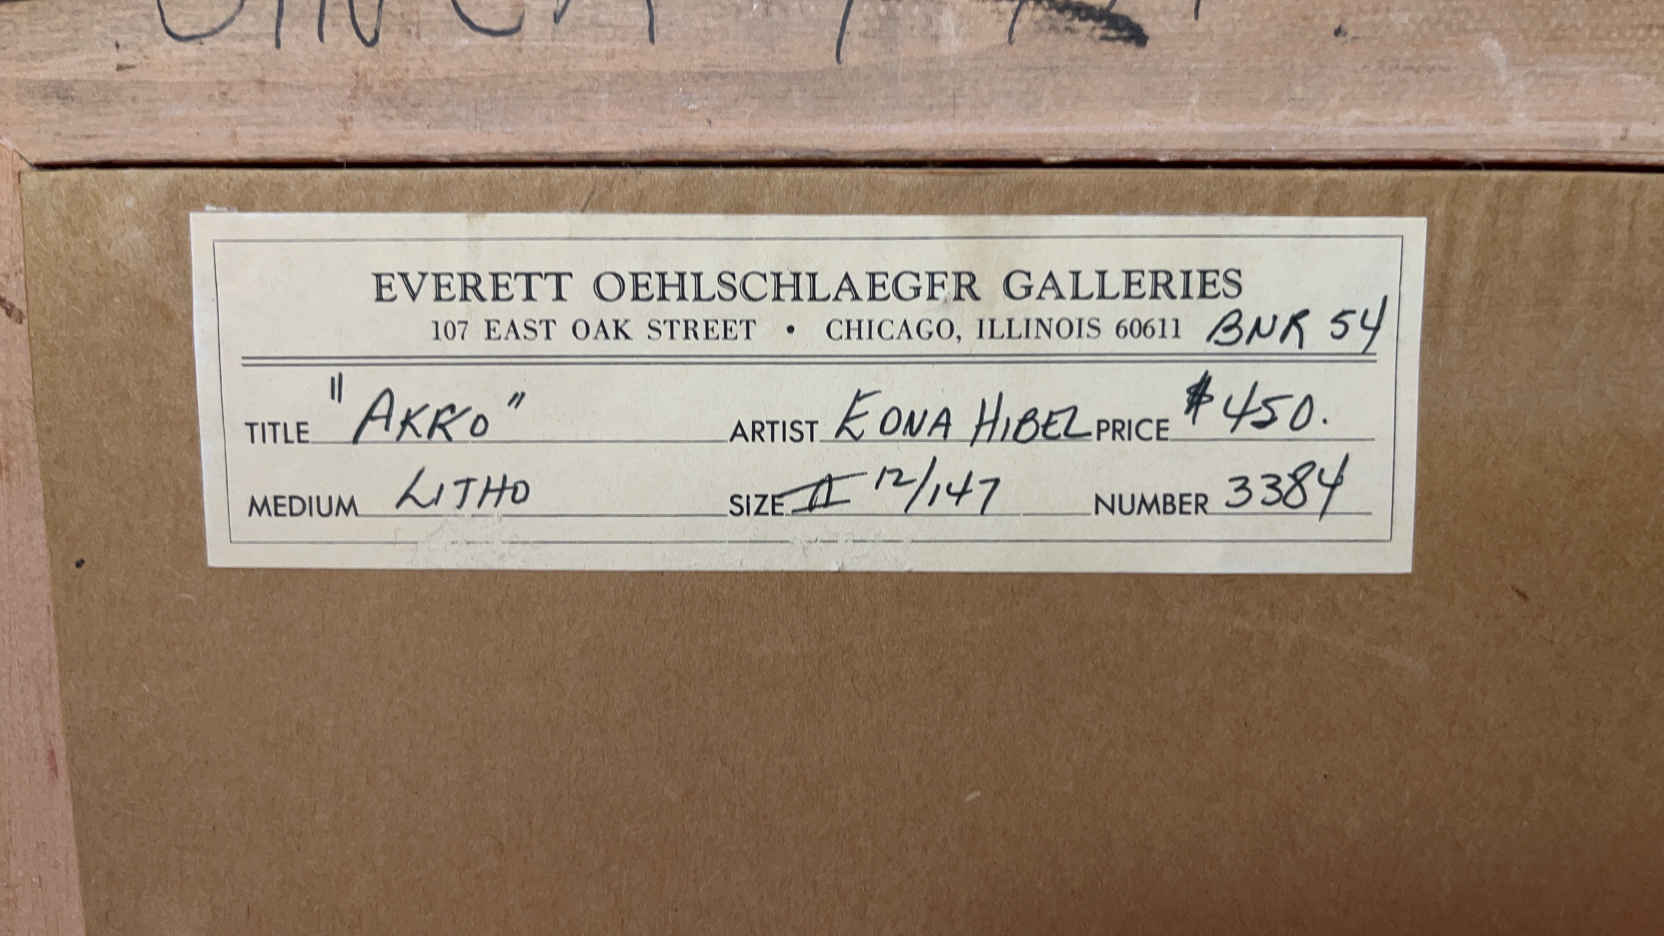 EVERETT OEHLSCHLAEGER GALLERIES
107 EAST OAK STREET • CHICAGO, ILLINOIS 60611 BNR 54
TITLE "AKKO" ARTIST EDNA HIBEL PRICE $450.
MEDIUM LITHO SIZE II 12/147 NUMBER 3384